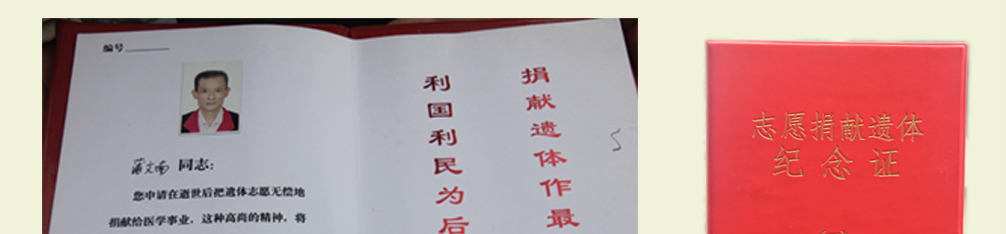 编号
同志:
您申请在逝世后把遗体志愿无偿地
捐献给医学事业，这种高尚的精神，将
捐献遗体作最
利国利民为后
志愿捐献遗体
纪念证